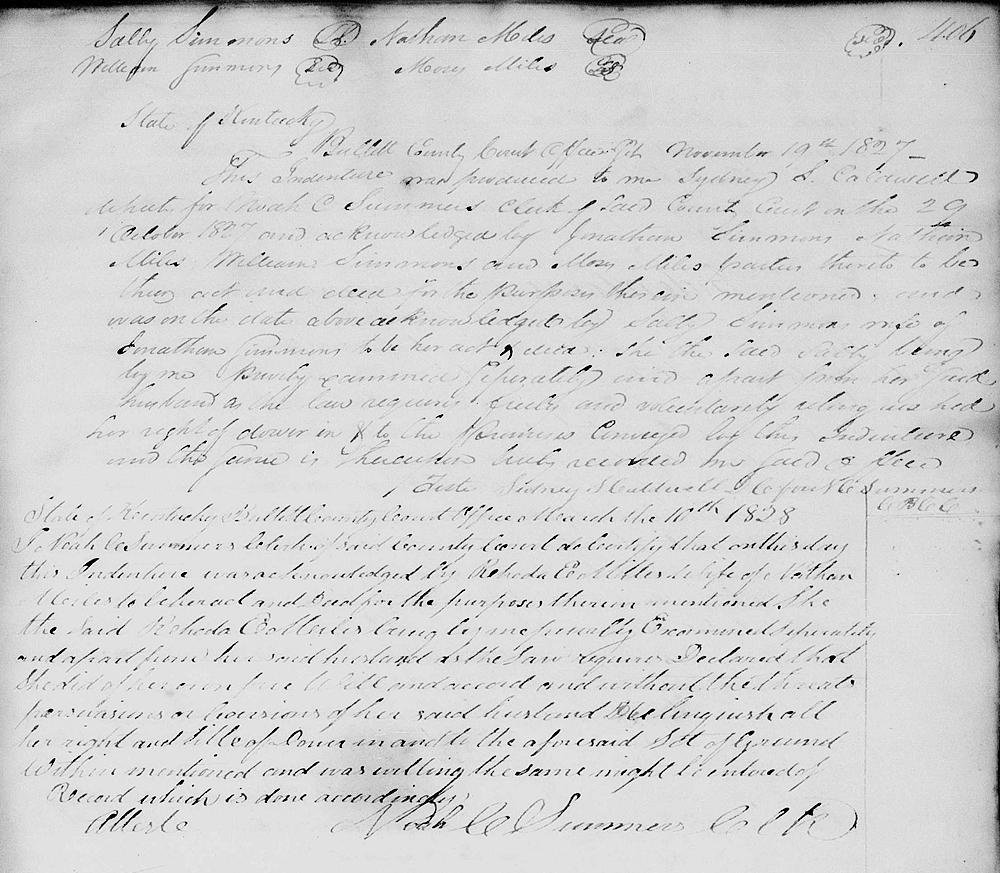 Sally Simmons Seal Nathan Miles Seal Seal 406
William Simmons Seal Moses Miles Seal
State of Kentucky
Bullitt County Court Office Sct November 19th 1827
This Indenture was produced to me Sydney S. Caldwell
deputy for Noah C Summers Clerk of Said County Court on the 29
October 1827 and acknowledged by Jonathan Simmons Nathan
Miles William Simmons and Moses Miles parties thereto to be
their act and deed for the purposes therein mentioned, and
was on the date above acknowledged by Sally Simmons wife of
Jonathan Simmons to be her act & deed. She the Said Sally being
by me Privily examined Seperately and apart from her Said
husband as the law requires freely and voluntarily relinquished
her right of dower in & to the Premises Conveyed by this Indenture
and the same is hereupon duly recorded in my Said office
Teste Sidney S Caldwell D C for N C Summers
C B C C
State of Kentucky Bullitt County Court Office March the 10th 1828
I Noah C Summers Clerk of said County Court do Certify that on this day
this Indenture was acknowledged by Rehoda C Miles Wife of Nathan
Miles to be her act and Deed for the purposes therein mentioned She
the said Rehoda C Miles being by me privily Examined seperately
and apart from her said husband as the Law requires Declared that
She did of her own free Will and accord and without the threats
persuasions or Coersions of her said husband Relinquish all
her right and title of Dower in and to the aforesaid Lot of Ground
Within mentioned and was willing the same might be entered of
Record which is done accordingly
Atteste Noah C Summers Clk